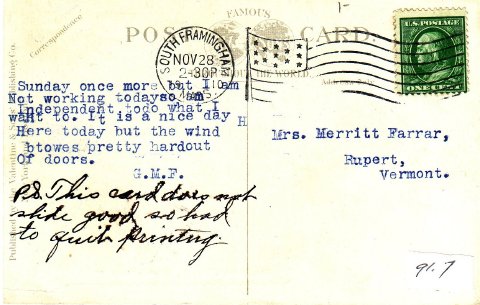 1-
FAMOUS
POST CARD.
Correspondence
SOUTH FRAMINGHAM
NOV 28
2-30P
1910
MASS.
U.S. POSTAGE
THE WORLD.
Sunday once more but I am
Not working todayso am
Independent todo what I
waht to. It is a nice day
H
Here today but the wind
btowes pretty hardout
Of doors.
G.M.F.
P.S. This card does not
slide good so had
to quit printing.
Mrs. Merritt Farrar,
Rupert,
Vermont.
Published by The Valentine & Publishing Co.
91.7